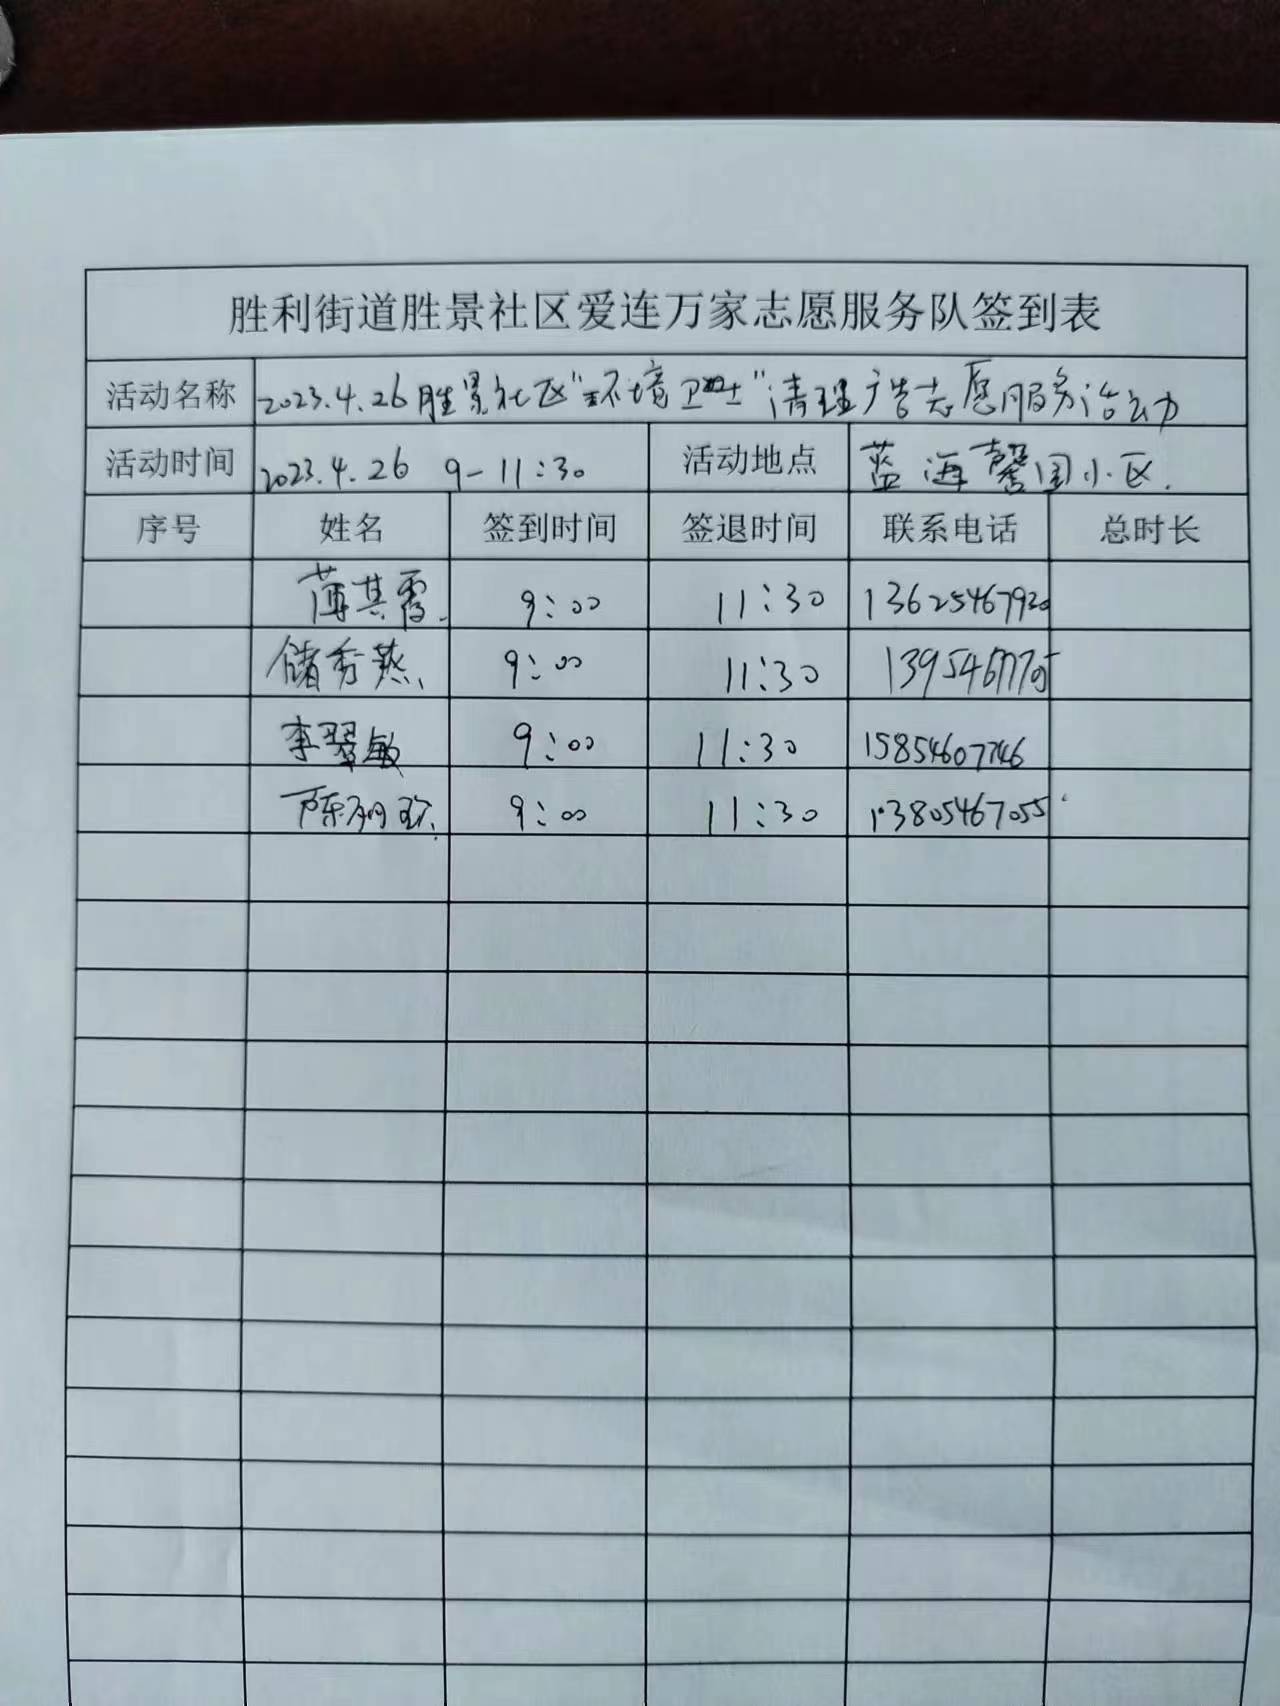 胜利街道胜景社区爱连万家志愿服务队签到表
活动名称 2023.4.26胜景社区"环境卫士"清理广告志愿服务活动
活动时间 2023.4.26 9-11:30 活动地点 蓝海馨园小区.
序号 姓名 签到时间 签退时间 联系电话 总时长
薄其霞. 9:00 11:30 13625467920
储秀燕 9:00 11:30
李翠敏 9:00 11:30 15854607746
陈 9:00 11:30 13805467055